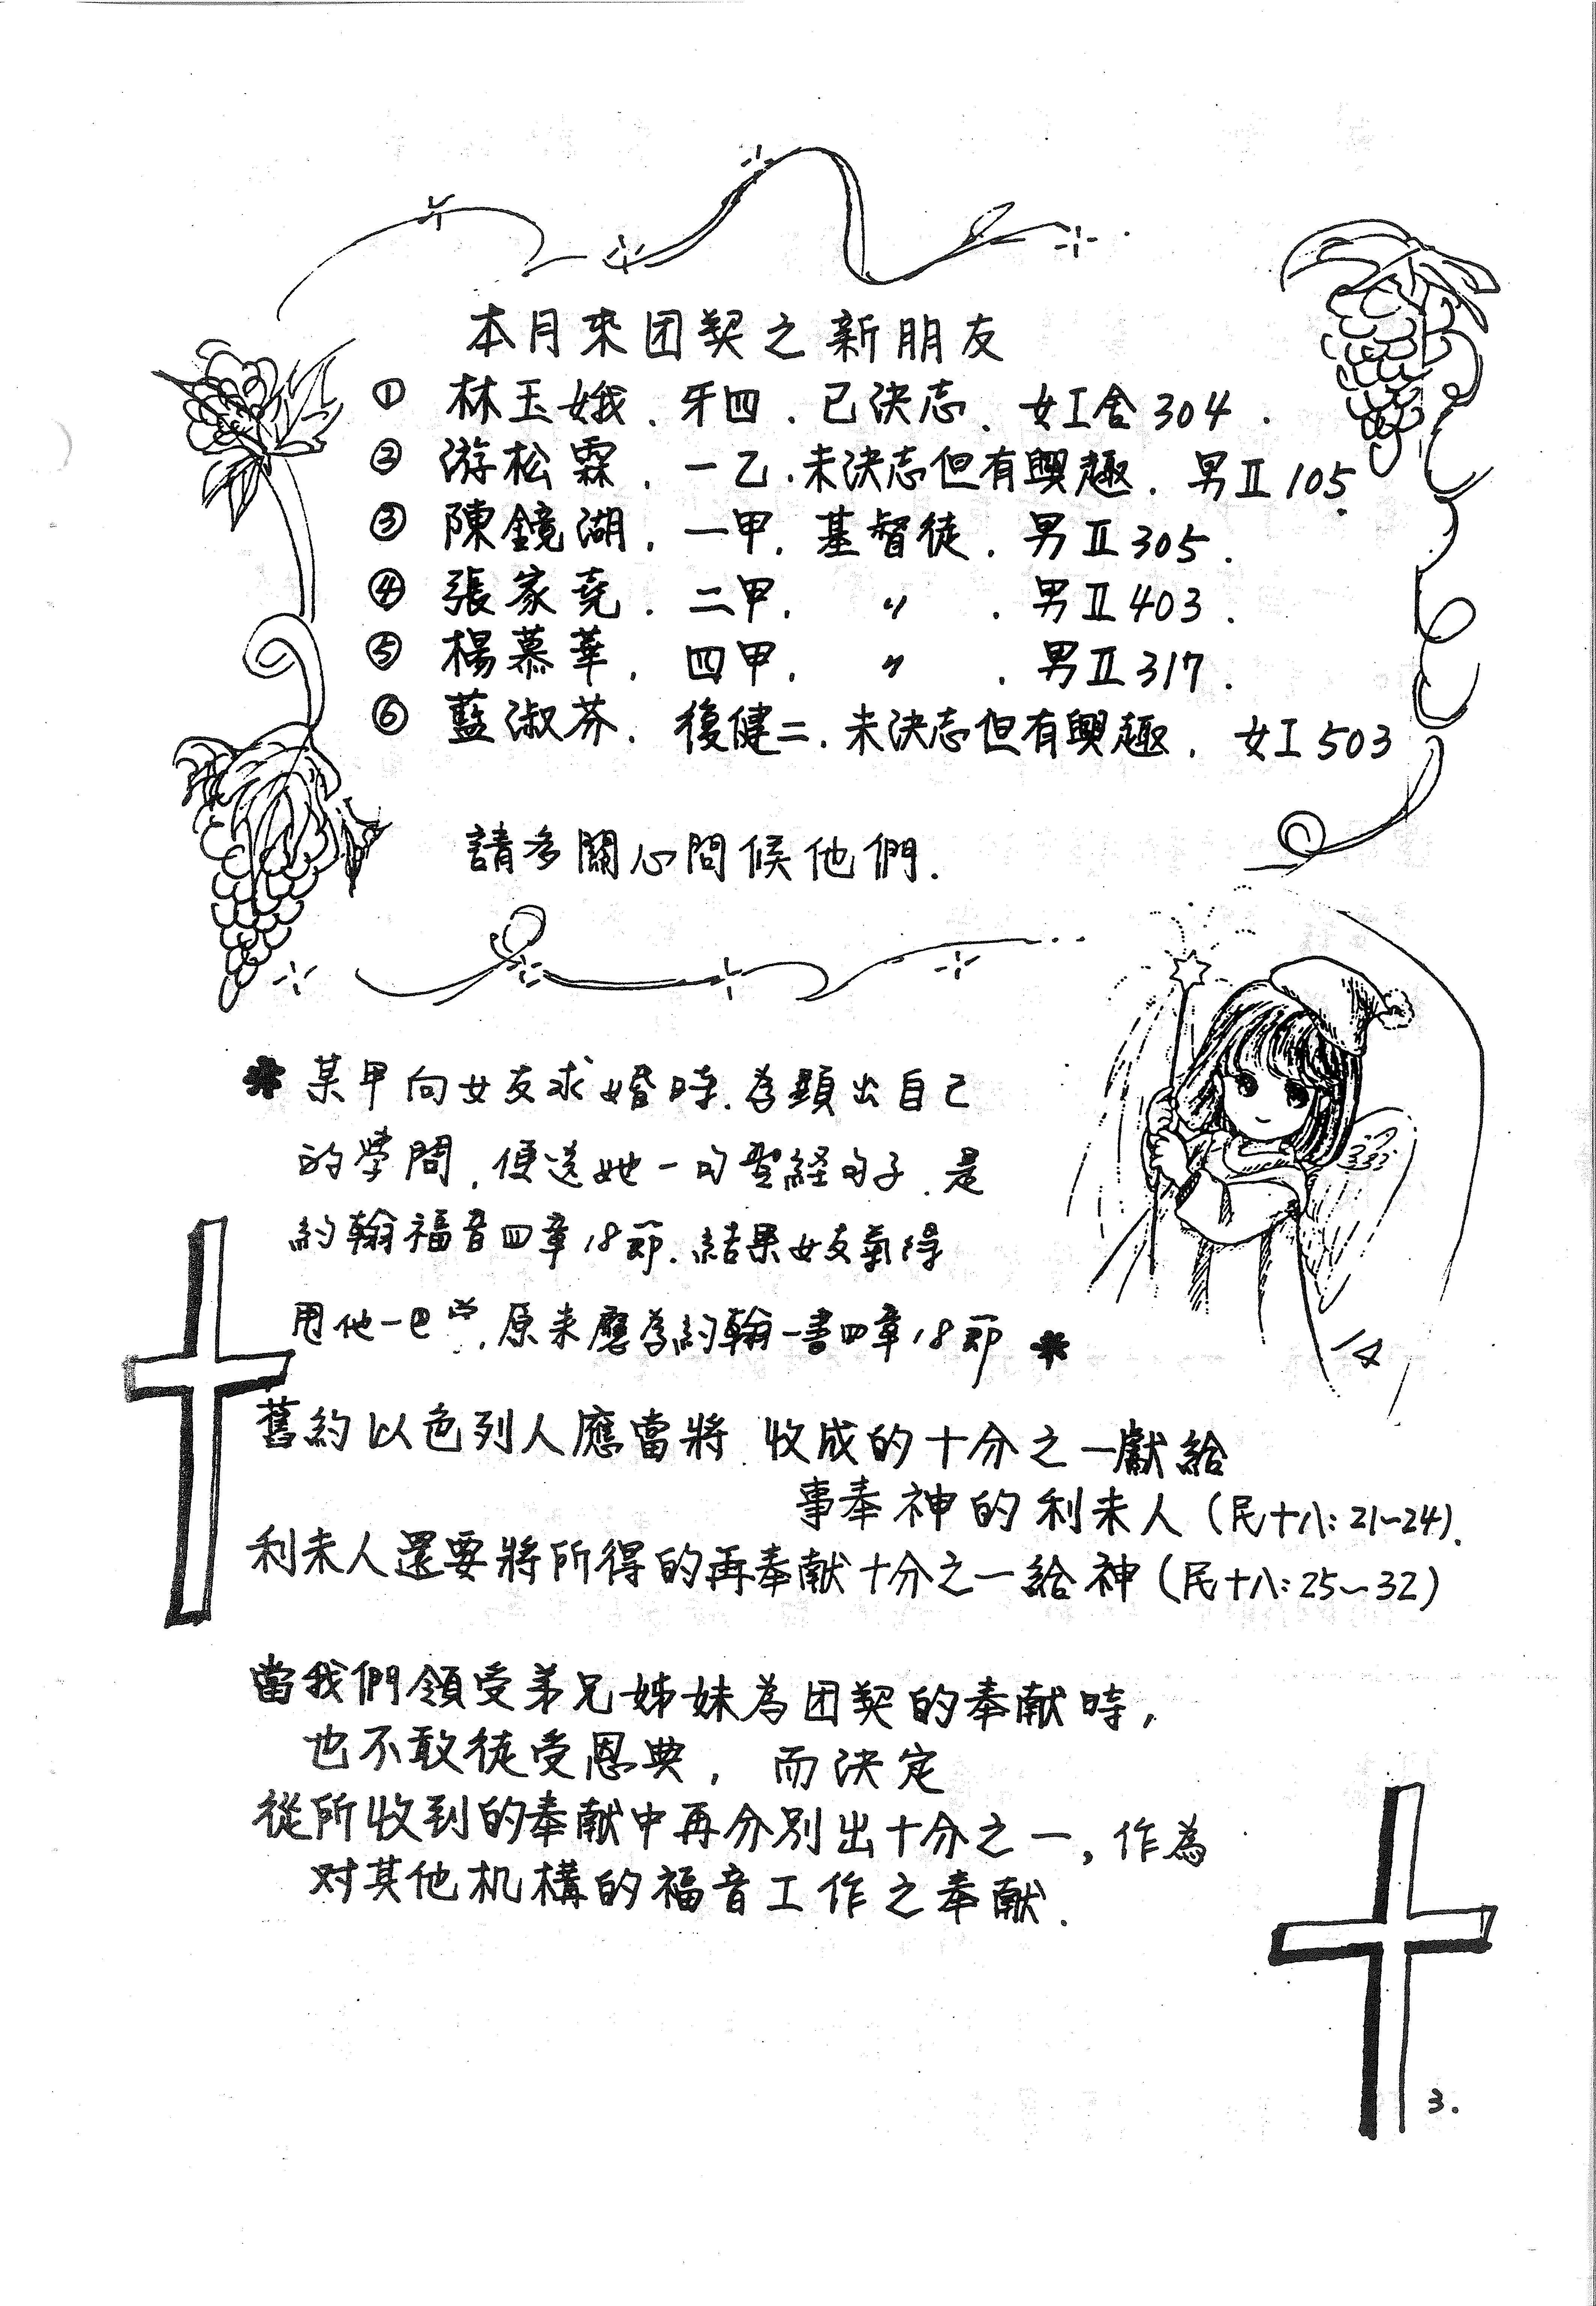 本月來团契之新朋友
① 林玉娥．牙四．已決志．女I舍304．
② 游松霖．一乙．未決志但有興趣．男II 105．
③ 陳鏡湖．一甲．基督徒．男II 305．
④ 張家堯．二甲．〃．男II 403．
⑤ 楊慕華．四甲．〃．男II 317．
⑥ 藍淑芬．復健二．未決志但有興趣．女I 503
請多關心問候他們．
＊某甲向女友求婚時．為顯出自己
的學問，便送她一句聖経句子．是
約翰福音四章18節．結果女友氣得
甩他一巴掌，原來應為約翰一書四章18節＊
舊約以色列人應當將 收成的十分之一獻給
事奉神的利未人（民十八：21~24）．
利未人還要將所得的再奉献十分之一給神（民十八：25~32）
當我們領受弟兄姊妹為团契的奉献時，
也不敢徒受恩典，而決定
從所收到的奉献中再分別出十分之一，作為
对其他机構的福音工作之奉献．
3.